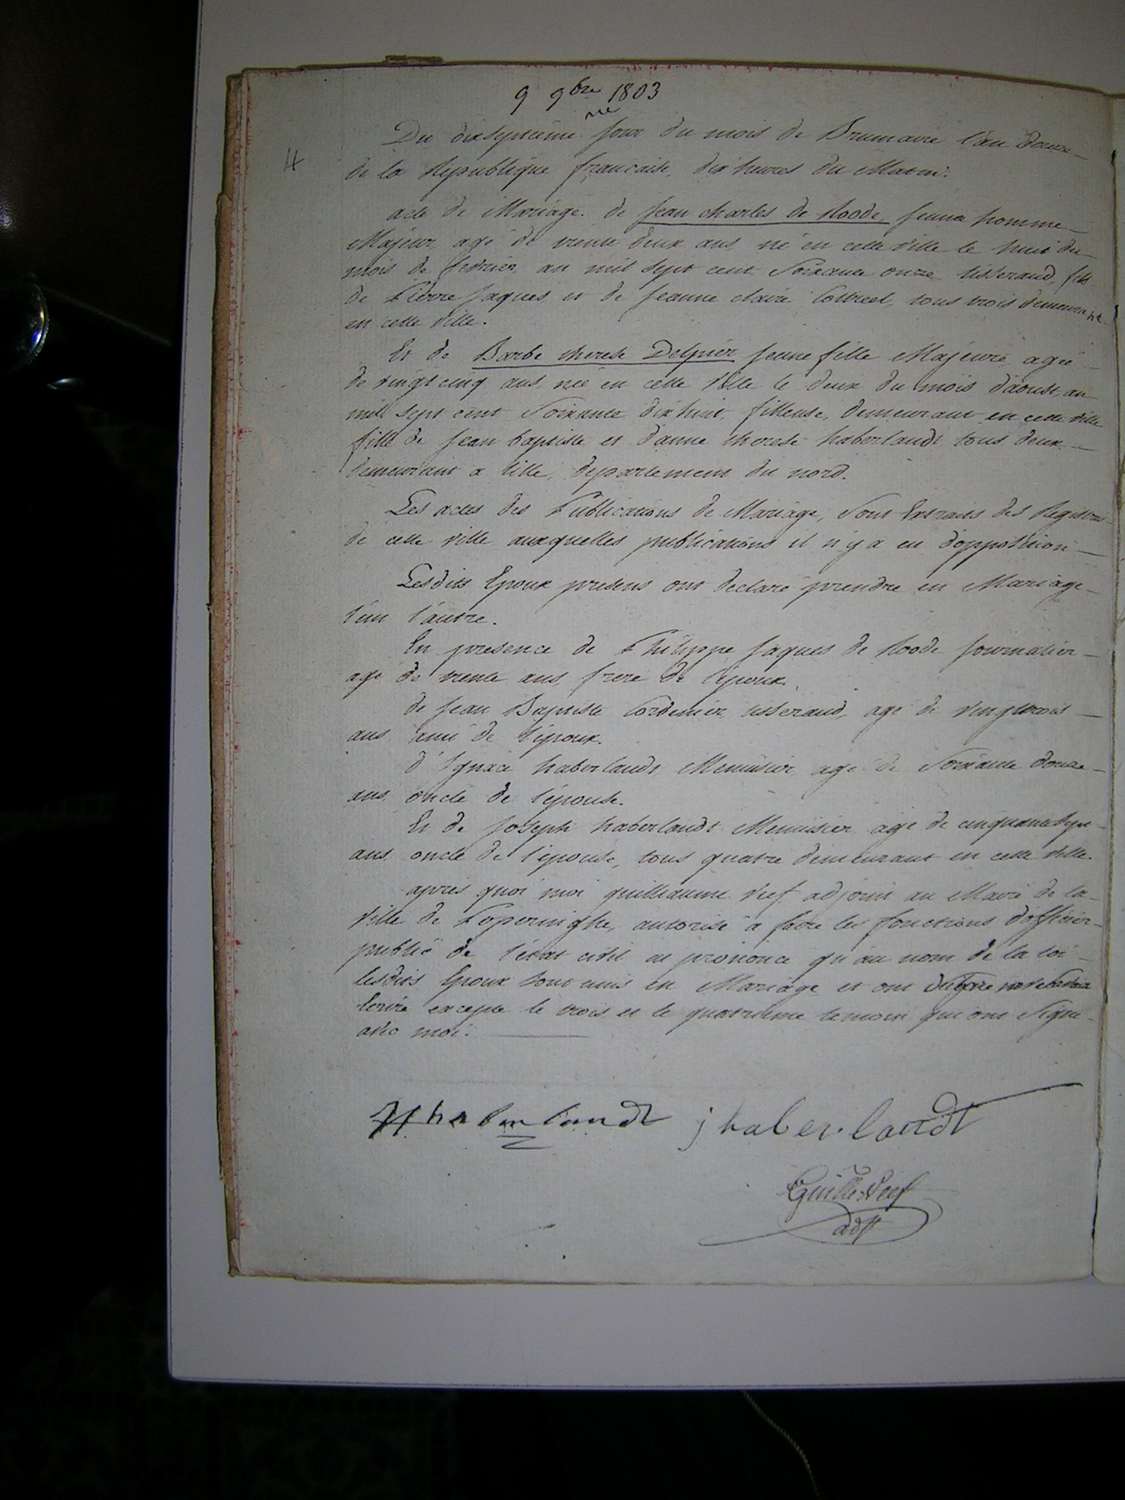 9 9bre 1803
4
Du dixseptième jour du mois de Brumaire l'an douze
de la Republique francaise, dix heures du Matin.
acte de Mariage de jean charles de Roode jeune homme
Majeur agé de trente deux ans né en cette ville le huit du
mois de fevrier an mil sept cent Soixante onze tisserand, fils
de Pierre jaques et de jeanne claire Cottreel, tous trois demeurant
en cette ville.
Et de Barbe therese Delpier jeune fille Majeure agée
de vingt cinq ans, née en cette Ville le deux du mois d'aoust an
mil sept cent Soixante dix huit, filleuse, demeurant en cette ville
fille de jean baptiste et d'anne therese haberlandt tous deux
demeurant a lille, departement du nord.
Les actes des Publications de Mariage, Sont Extraits des Registres
de cette ville auxquelles publications il n'y a eu d'opposition
Lesdits Epoux presens ont declaré prendre en Mariage
l'un l'autre.
En presence de Philippe jaques de Roode journalier
agé de trente ans, frere de l'epoux.
de jean Baptiste Cordenier, tisserand, agé de vingttrois
ans ami de l'époux.
d'Ignace haberlandt Menuisier agé de Soixante douze
ans, oncle de l'épouse.
Et de joseph haberlandt Menuisier agé de cinquantesept
ans oncle de l'épouse, tous quatre demeurant en cette ville.
après quoi moi guilleaume Vief adjoint au Maire de la
Ville de Poperinghe, autorisé a faire les fonctions d'officier
public de l'état civil ai prononcé qu'au nom de la loi
lesdits Epoux sont unis en Mariage et ont
Ecrire excepté le trois et le quatrieme temoin qui ont Signé
avec moi.
haberlandt j haberlandt
Guille Vief
adjt